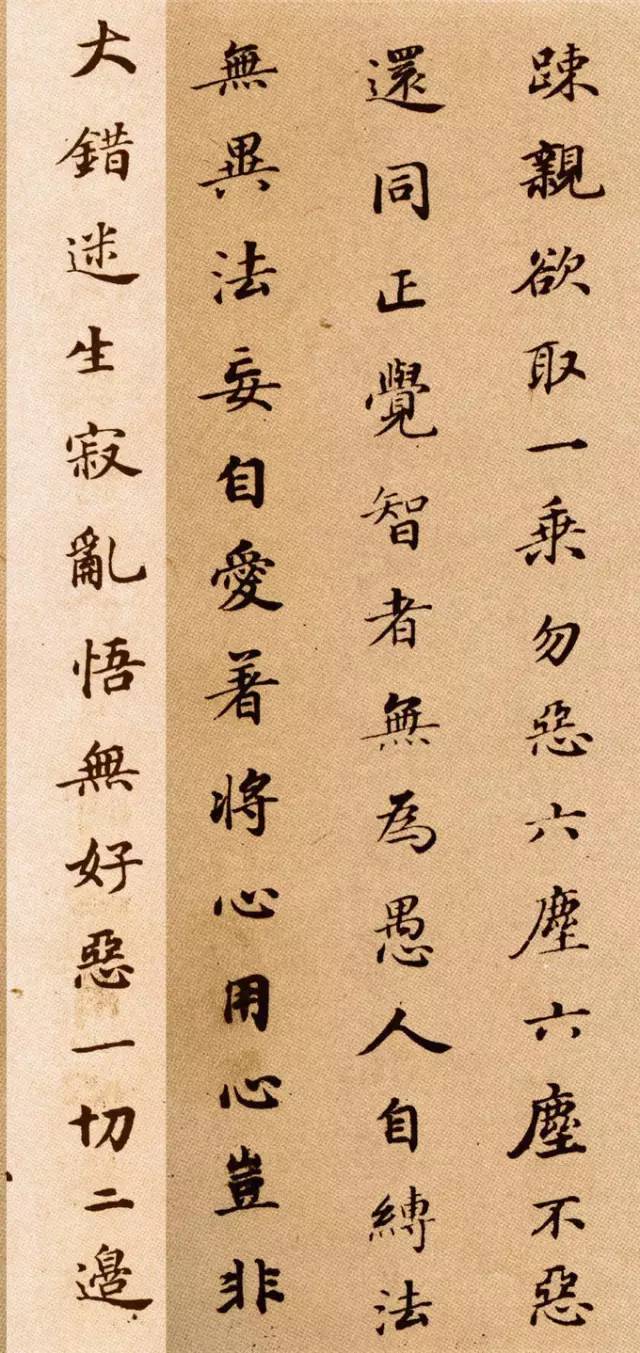 踈親欲取一乗勿惡六塵六塵不惡
還同正覺智者無為愚人自縛法
無異法妄自愛著將心用心豈非
大錯迷生寂亂悟無好惡一切二邊